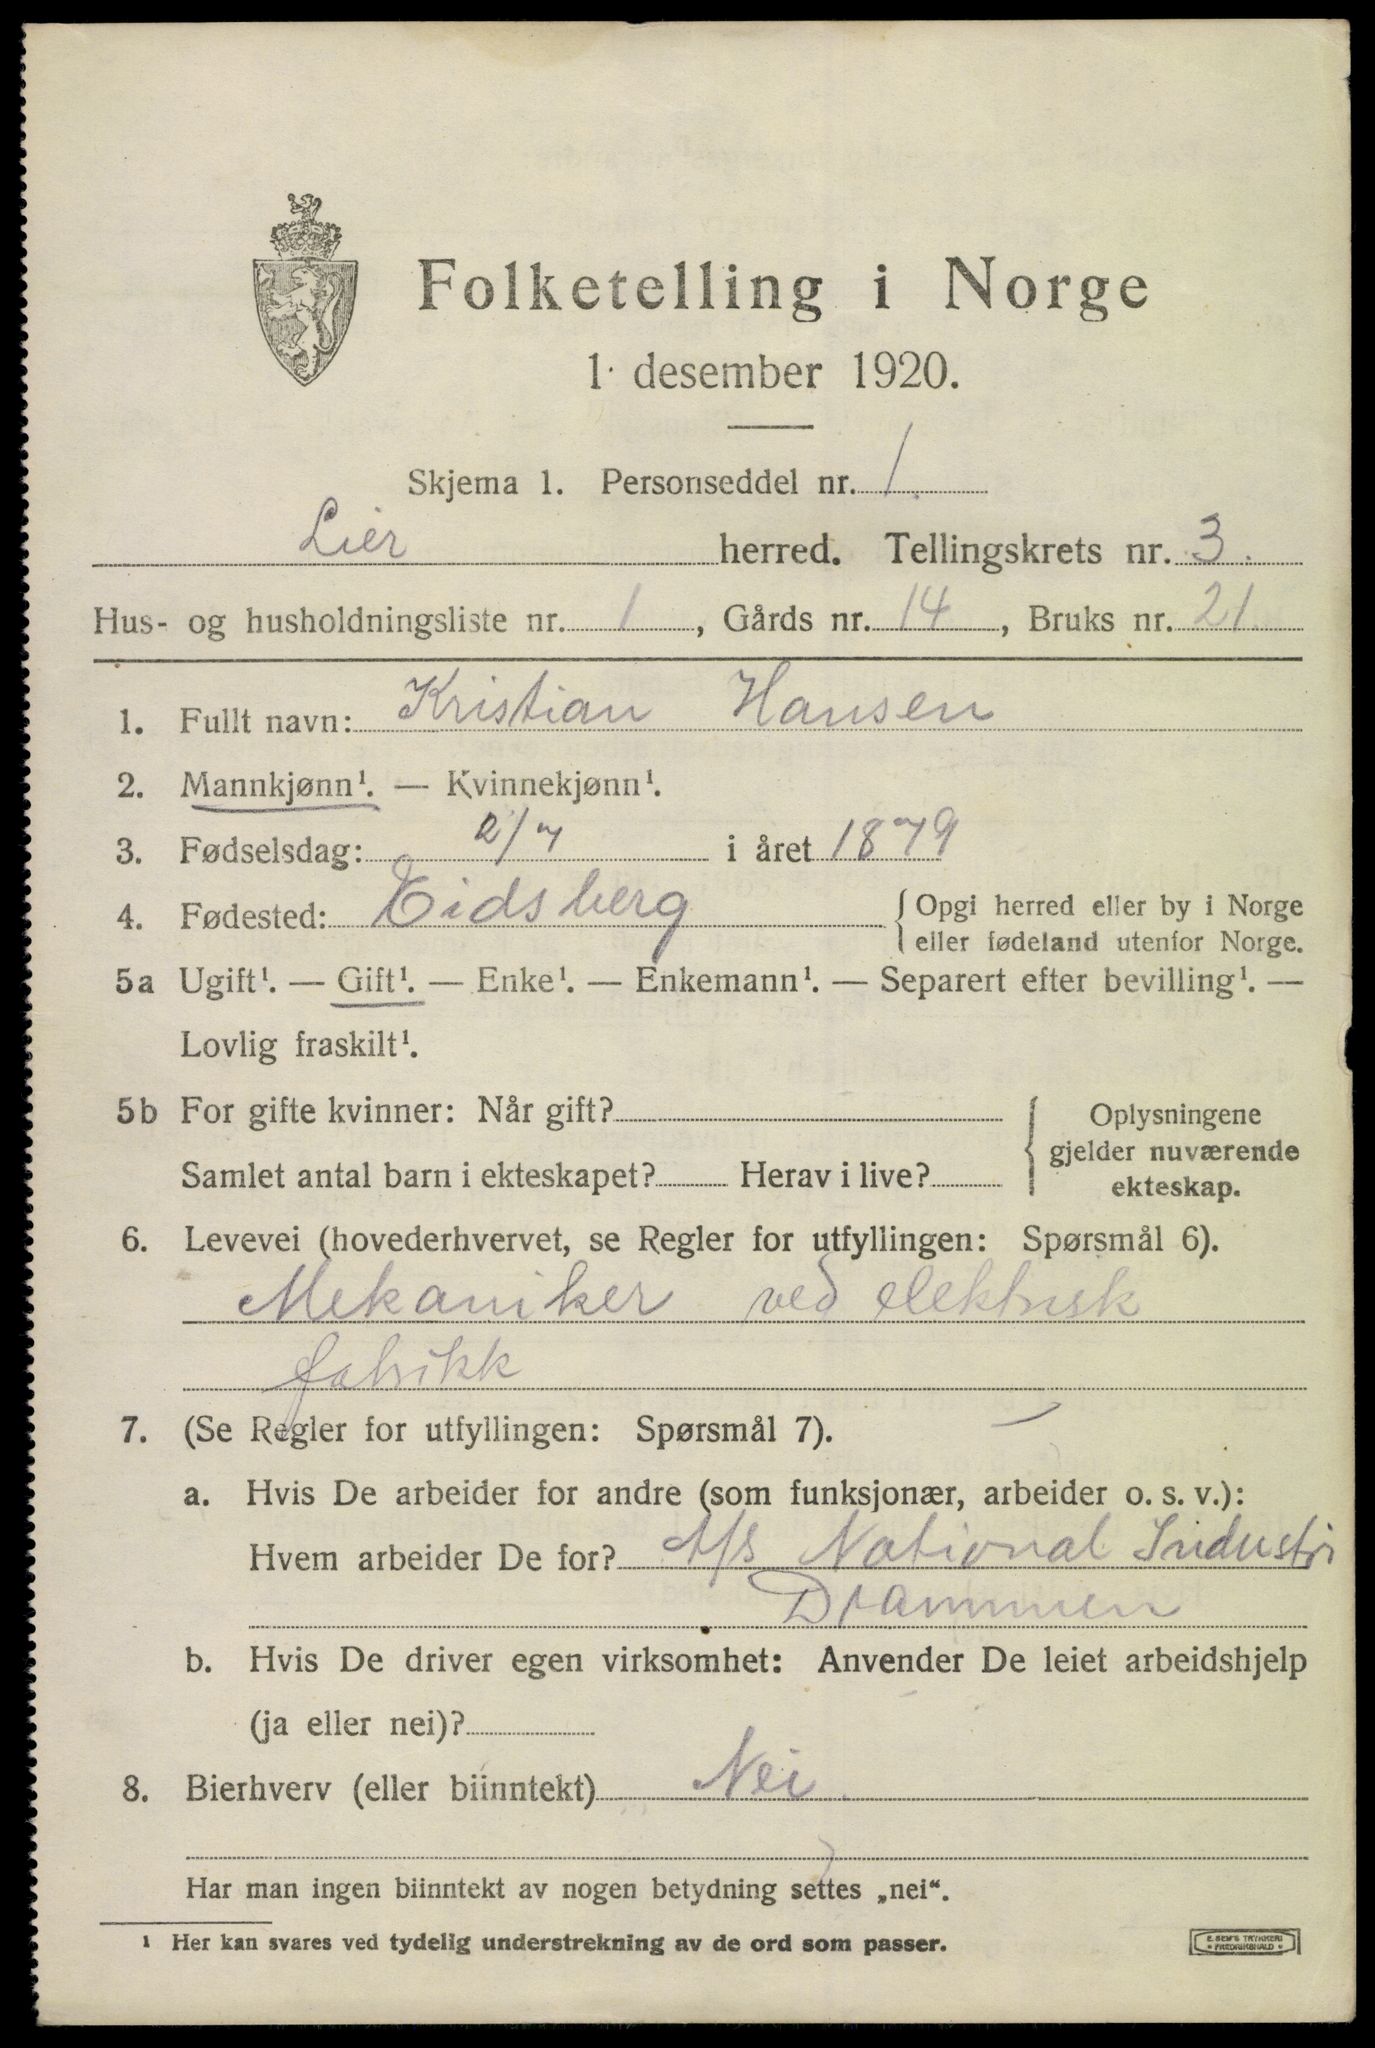 Folketelling i Norge
1. desember 1920.
Skjema 1. Personseddel nr. 1.
Lier herred. Tellingskrets nr. 3.
Hus- og husholdningsliste nr. 1, Gårds nr. 14, Bruks nr. 21.
1. Fullt navn: Kristian Hansen
2. Mannkjønn¹. — Kvinnekjønn¹.
3. Fødselsdag: 2/7 i året 1879
4. Fødested: Eidsberg {Opgi herred eller by i Norge
eller fødeland utenfor Norge.
5a Ugift¹. — Gift¹. — Enke¹. — Enkemann¹. — Separert efter bevilling¹. —
Lovlig fraskilt¹.
5b For gifte kvinner: Når gift?
Samlet antal barn i ekteskapet? Herav i live?
{Oplysningene
gjelder nuværende
ekteskap.
6. Levevei (hovederhvervet, se Regler for utfyllingen: Spørsmål 6).
Mekaniker ved elektrisk
fabrikk
7. (Se Regler for utfyllingen: Spørsmål 7).
a. Hvis De arbeider for andre (som funksjonær, arbeider o. s. v.):
Hvem arbeider De for? A/s National Industri
Drammen
b. Hvis De driver egen virksomhet: Anvender De leiet arbeidshjelp
(ja eller nei)?
8. Bierhverv (eller biinntekt) Nei.
Har man ingen biinntekt av nogen betydning settes „nei“.
¹ Her kan svares ved tydelig understrekning av de ord som passer.
E. SEM'S TRYKKERI
* FREDRIKSHALD *